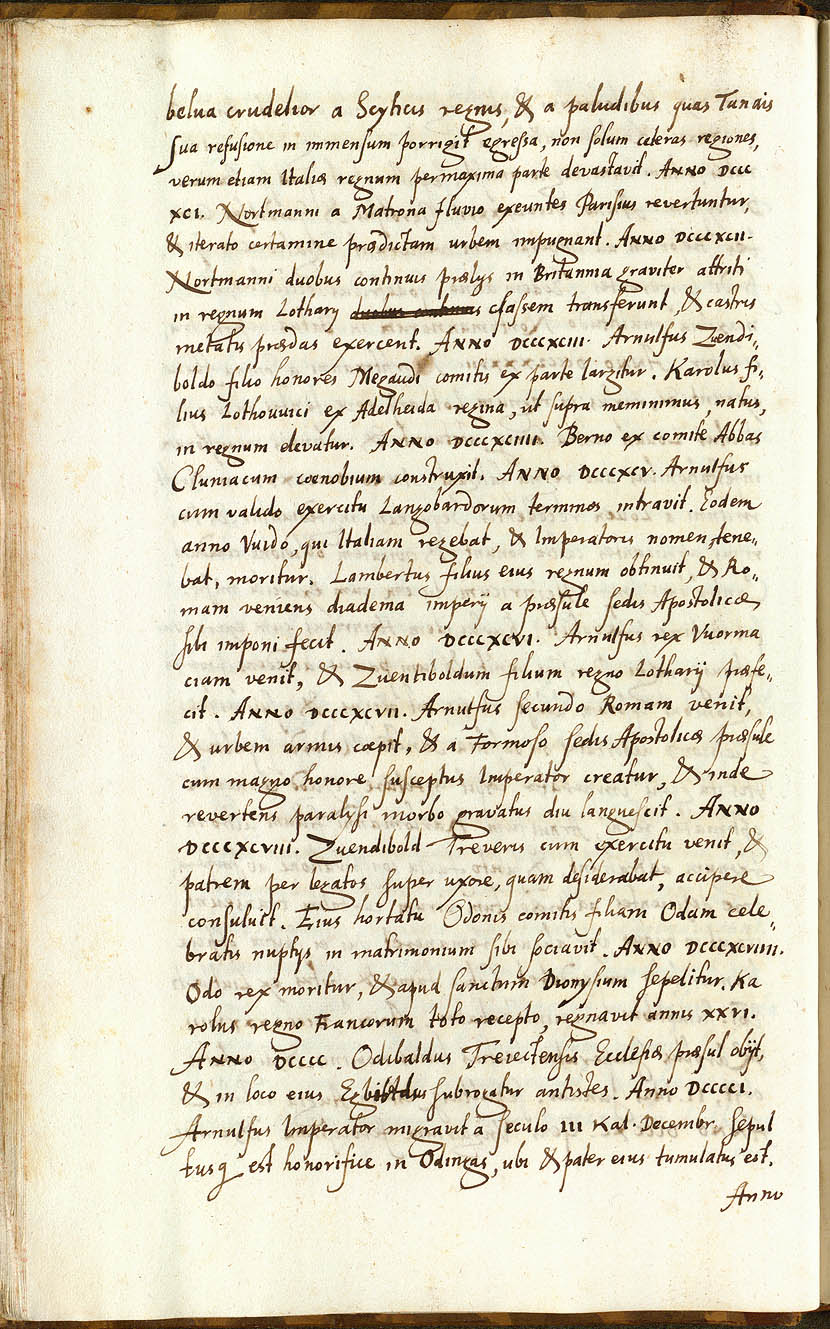 belua crudelior a Scythicis regnis, & a paludibus quas Tanais
sua refusione in immensum porrigit egressa, non solum cæteras regiones,
verum etiam Italiæ regnum permaxima parte devastavit. ANNO DCCC
XCI. Nortmanni a Matrona fluvio exeuntes Parisius revertuntur,
& iterato certamine prædictam urbem impugnant. ANNO DCCCXCII.
Nortmanni duobus continuis prælijs in Britannia graviter attriti
in regnum Lotharij duobus continuis classem transferunt, & castris
metatis prædas exercent. ANNO DCCCXCIII. Arnulfus Zuendi,,
boldo filio honores Megaudi comitis ex parte largitur. Karolus fi,,
lius Lothouuici ex Adelheida regina, ut supra meminimus, natus,
in regnum elevatur. ANNO DCCCXCIIII. Berno ex comite Abbas
Cluniacum cœnobium construxit. ANNO DCCCXCV. Arnulfus
cum valido exercitu Langobardorum terminos intravit. Eodem
anno Vuido, qui Italiam regebat, & Imperatoris nomen tene,,
bat, moritur. Lambertus filius eius regnum obtinuit, & Ro,,
mam veniens diadema imperij a præsule sedis Apostolicæ
sibi imponi fecit. ANNO DCCCXCVI. Arnulfus rex Vuorma
ciam venit, & Zuentiboldum filium regno Lotharij præfe,,
cit. ANNO DCCCXCVII. Arnulfus secundo Romam venit,
& urbem armis cœpit, & a Formoso sedis Apostolicæ præsule
cum magno honore susceptus Imperator creatur, & inde
revertens paralysi morbo gravatus diu languescit. ANNO
DCCCXCVIII. Zuendibold Treveris cum exercitu venit, &
patrem per legatos super uxore, quam desiderabat, accipere
consuluit. Eius hortatu Odonis comitis filiam Odam cele,,
bratis nuptijs in matrimonium sibi sociavit. ANNO DCCCXCVIIII.
Odo rex moritur, & apud sanctum Dionysium sepelitur. Ka
rolus regno Francorum toto recepto, regnavit annis XXVI.
ANNO DCCCC. Odibaldus Treiectensis Ecclesiæ præsul obijt,
& in loco eius subrogatur antistes. Anno DCCCCI.
Arnulfus Imperator migravit a seculo III Kal. Decembr. sepul
tusq est honorifice in Odingas, ubi & pater eius tumulatus est.
Anno